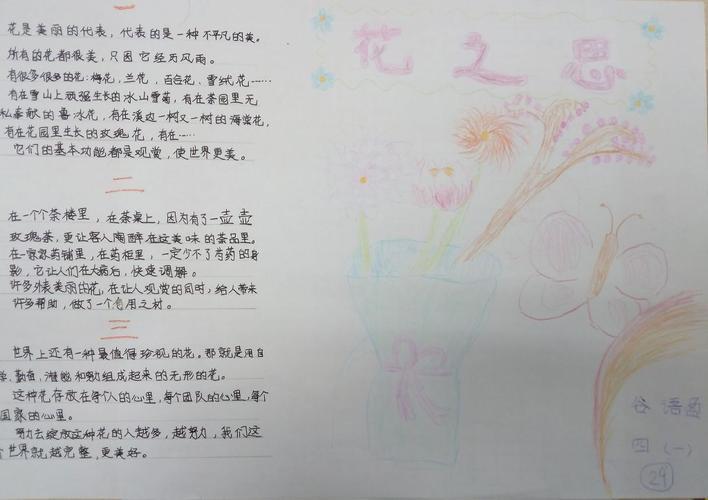 一
花是美丽的代表，代表的是一种不平凡的美。
所有的花都很美，只因它经历风雨。
有很多很多的花：梅花，兰花，百合花，雪绒花……
有在雪山上顽强生长的冰山雪菊，有在茶园里无
私奉献的喜水花，有在溪边一树又一树的海棠花，
有在花园里生长的玫瑰花，有在……
它们的基本功能都是观赏，使世界更美。
二
在一个个茶楼里，在茶桌上，因为有了一壶壶
玫瑰茶，更让客人陶醉在这美味的茶品里。
在一家家药铺里，在药柜里，一定少不了芍药的身
影，它让人们在大病后，快速调解。
许多外表美丽的花，在让人观赏的同时，给人带来
许多帮助，做了一个有用之材。
三
世界上还有一种最值得珍视的花。那就是用自
学，勤奋，潜能和努组成起来的无形的花。
这种花存放在每个人的心里，每个团队的心里，每个
国家的心里。
努力去绽放这种花的人越多，越努力，我们这
个世界就越完整，更美好。
花之思
谷语函
四（一）
24